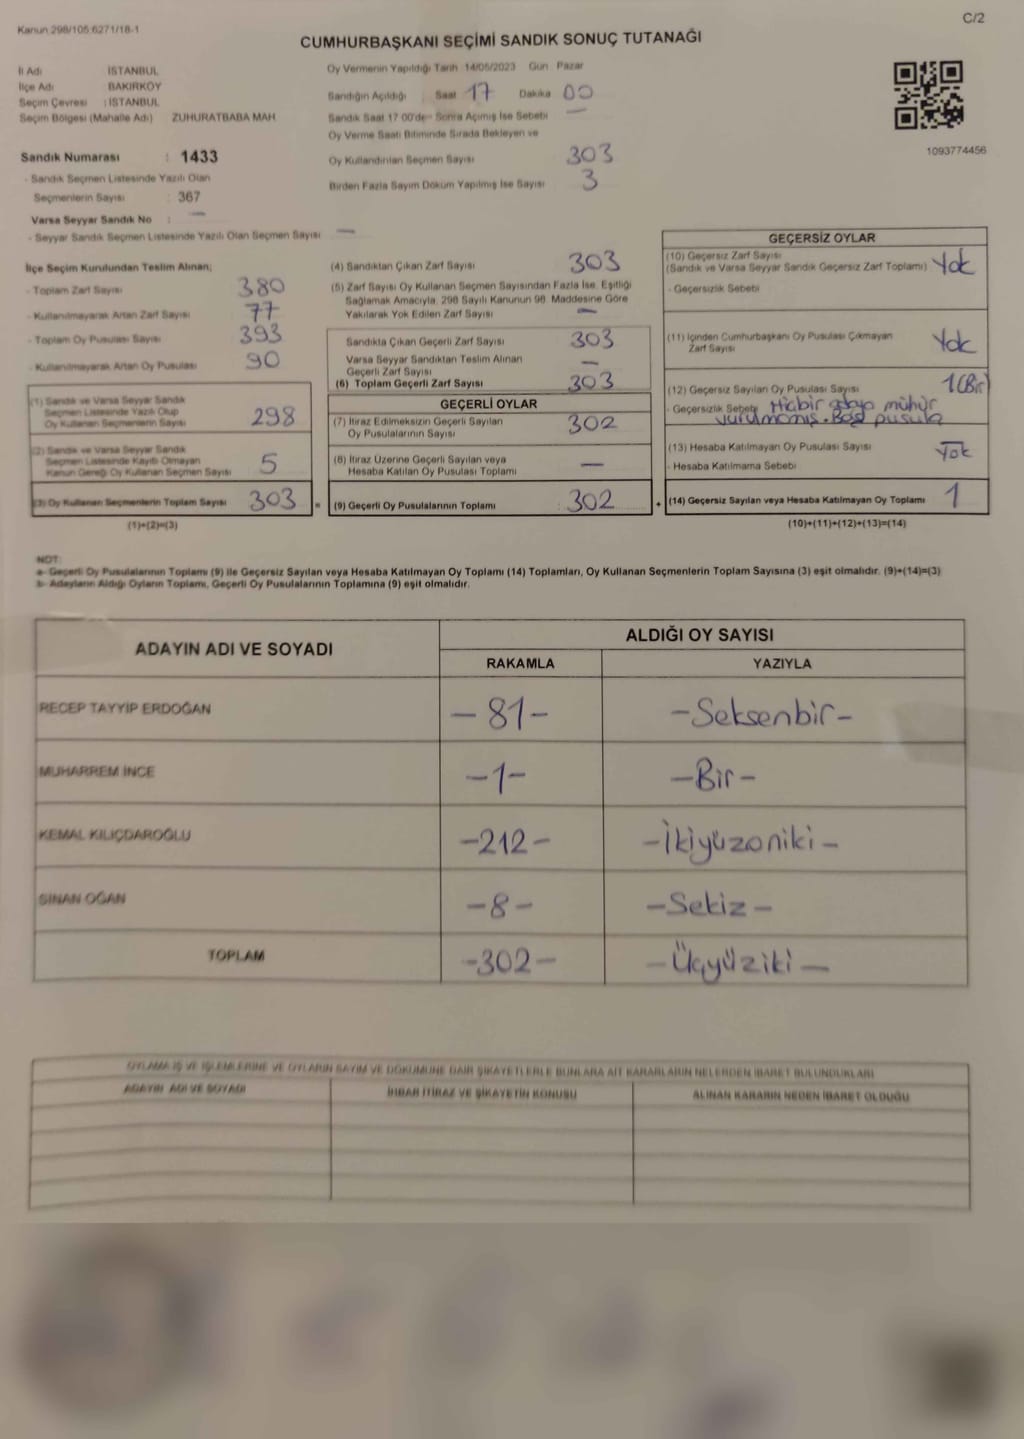 Kanun 298/105 6271/18-1
C/2
CUMHURBAŞKANI SEÇİMİ SANDIK SONUÇ TUTANAĞI
İl Adı : İSTANBUL
İlçe Adı : BAKIRKÖY
Seçim Çevresi : İSTANBUL
Seçim Bölgesi (Mahalle Adı) ZUHURATBABA MAH.
Sandık Numarası : 1433
- Sandık Seçmen Listesinde Yazılı Olan
Seçmenlerin Sayısı : 367
Varsa Seyyar Sandık No : —
- Seyyar Sandık Seçmen Listesinde Yazılı Olan Seçmen Sayısı —
Oy Vermenin Yapıldığı Tarih 14/05/2023 Gün Pazar
Sandığın Açıldığı Saat 17 Dakika 00
Sandık Saat 17.00'de- Sonra Açımış İse Sebebi —
Oy Verme Saati Bitiminde Sırada Bekleyen ve
Oy Kullandırılan Seçmen Sayısı 303
Birden Fazla Sayım Döküm Yapılmış İse Sayısı 3
1093774456
İlçe Seçim Kurulundan Teslim Alınan;
- Toplam Zarf Sayısı 380
- Kullanılmayarak Artan Zarf Sayısı 77
- Toplam Oy Pusulası Sayısı 393
- Kullanılmayarak Artan Oy Pusulası 90
(1) Sandık ve Varsa Seyyar Sandık
Seçmen Listesinde Yazılı Olup
Oy Kullanan Seçmenlerin Sayısı 298
(2) Sandık ve Varsa Seyyar Sandık
Seçmen Listesinde Kayıtlı Olmayan
Kanun Gereği Oy Kullanan Seçmen Sayısı 5
(3) Oy Kullanan Seçmenlerin Toplam Sayısı 303 =
(1)+(2)=(3)
(4) Sandıktan Çıkan Zarf Sayısı 303
(5) Zarf Sayısı Oy Kullanan Seçmen Sayısından Fazla İse, Eşitliği
Sağlamak Amacıyla, 298 Sayılı Kanunun 98. Maddesine Göre
Yakılarak Yok Edilen Zarf Sayısı —
Sandıkta Çıkan Geçerli Zarf Sayısı 303
Varsa Seyyar Sandıktan Teslim Alınan
Geçerli Zarf Sayısı —
(6) Toplam Geçerli Zarf Sayısı 303
GEÇERLİ OYLAR
(7) İtiraz Edilmeksizin Geçerli Sayılan
Oy Pusulalarının Sayısı 302
(8) İtiraz Üzerine Geçerli Sayılan veya
Hesaba Katılan Oy Pusulası Toplamı —
(9) Geçerli Oy Pusulalarının Toplamı : 302 +
GEÇERSİZ OYLAR
(10) Geçersiz Zarf Sayısı
(Sandık ve Varsa Seyyar Sandık Geçersiz Zarf Toplamı) Yok
- Geçersizlik Sebebi
(11) İçinden Cumhurbaşkanı Oy Pusulası Çıkmayan
Zarf Sayısı Yok
(12) Geçersiz Sayılan Oy Pusulası Sayısı 1(Bir)
- Geçersizlik Sebebi Hiçbir adaya mühür
vurulmamış. Boş pusula
(13) Hesaba Katılmayan Oy Pusulası Sayısı Yok
- Hesaba Katılmama Sebebi
(14) Geçersiz Sayılan veya Hesaba Katılmayan Oy Toplamı 1
(10)+(11)+(12)+(13)=(14)
NOT:
a- Geçerli Oy Pusulalarının Toplamı (9) ile Geçersiz Sayılan veya Hesaba Katılmayan Oy Toplamı (14) Toplamları, Oy Kullanan Seçmenlerin Toplam Sayısına (3) eşit olmalıdır. (9)+(14)=(3)
b- Adayların Aldığı Oyların Toplamı, Geçerli Oy Pusulalarının Toplamına (9) eşit olmalıdır.
ADAYIN ADI VE SOYADI
ALDIĞI OY SAYISI
RAKAMLA YAZIYLA
RECEP TAYYİP ERDOĞAN -81- -Seksenbir-
MUHARREM İNCE -1- -Bir-
KEMAL KILIÇDAROĞLU -212- -İkiyüzoniki-
SİNAN OĞAN -8- -Sekiz-
TOPLAM -302- -Üçyüziki-
OYLAMA İŞ VE İŞLEMLERİNE VE OYLARIN SAYIM VE DÖKÜMÜNE DAİR ŞİKAYETLERLE BUNLARA AİT KARARLARIN NELERDEN İBARET BULUNDUKLARI
ADAYIN ADI VE SOYADI
İHBAR İTİRAZ VE ŞİKAYETİN KONUSU
ALINAN KARARIN NEDEN İBARET OLDUĞU